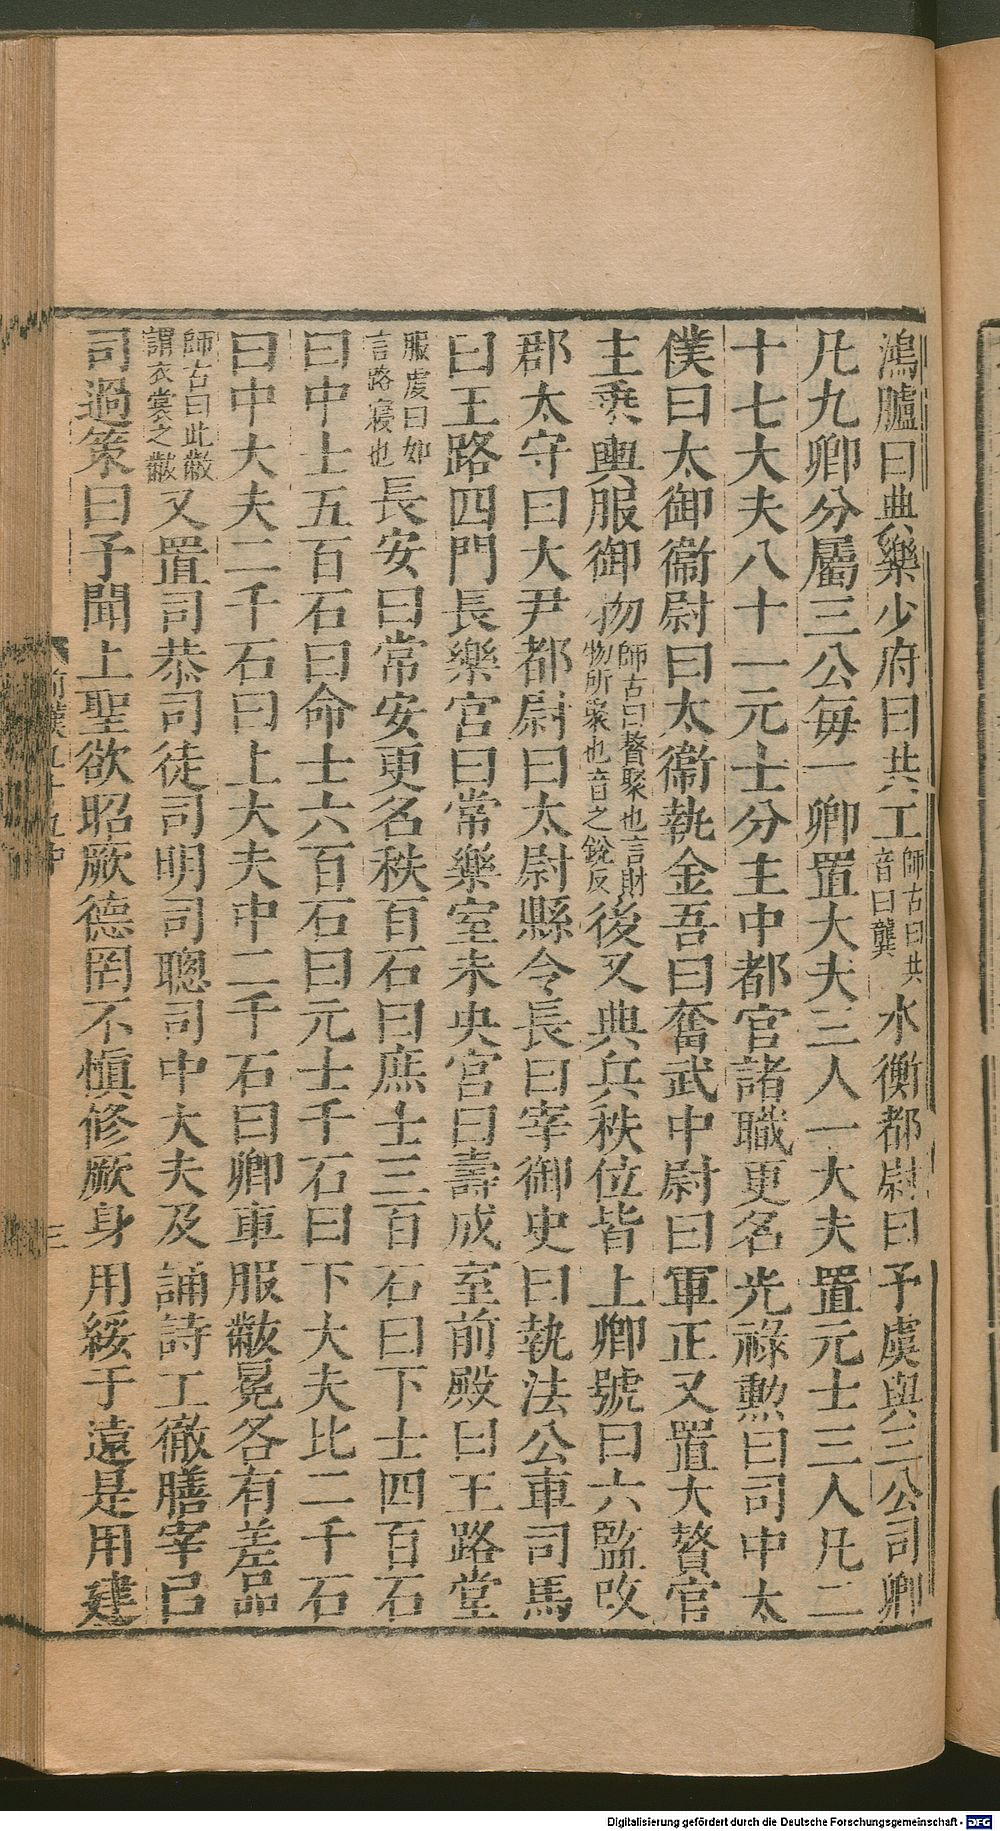 鴻臚曰典樂少府曰共工師古曰共音曰龔水衡都尉曰予虞與三公司卿
凡九卿分屬三公每一卿置大夫三人一大夫置元士三人凡二
十七大夫八十一元士分主中都官諸職更名光祿勲曰司中太
僕曰太御衞尉曰太衞執金吾曰奮武中尉曰軍正又置大贅官
主乘輿服御物師古曰贅聚也言財物所聚也音之銳反後又典兵秩位皆上卿號曰六監改
郡太守曰大尹都尉曰太尉縣令長曰宰御史曰執法公車司馬
曰王路四門長樂宮曰常樂室未央宮曰壽成室前殿曰王路堂
服虔曰如言路寢也長安曰常安更名秩百石曰庶士三百石曰下士四百石
曰中士五百石曰命士六百石曰元士千石曰下大夫比二千石
曰中大夫二千石曰上大夫中二千石曰卿車服黻冕各有差品
師古曰此黻謂衣裳之黻又置司恭司徒司明司聰司中大夫及誦詩工徹膳宰㠯
司過策曰予聞上聖欲昭厥德罔不愼修厥身用綏于遠是用建
三
Digitalisierung gefördert durch die Deutsche Forschungsgemeinschaft - DFG